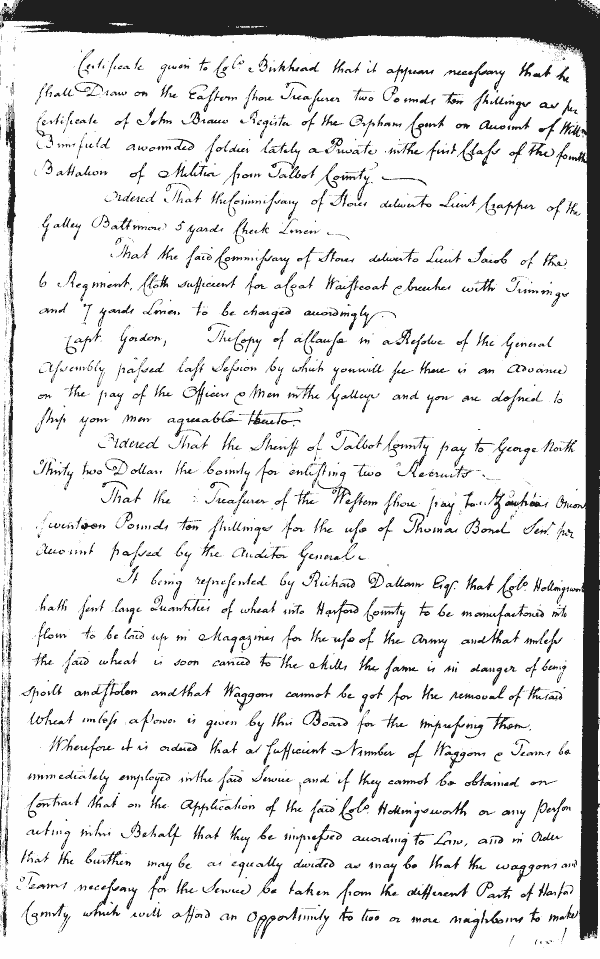 Certificate given to Col.º Birkhead that it appears necessary that he
shall Draw on the Eastern shore Treasurer two Pounds ten shillings as per
Certificate of John Bracco Register of the Orphans Court on Account of Will.m
a wounded soldier lately a Private in the first Class of the fourth
Battalion of Militia from Talbot County
Ordered That the Commissary of Stores deliver to Lieut Crapper of the
Galley Baltimore 5 yards Check Linen
That the said Commissary of Stores deliver to Lieut Jacob of the
6 Regiment, Cloth sufficient for a Coat Waistcoat & breeches with Trimings
and 7 yards Linen to be charged accordingly
Capt. Gordon, The Copy of a Clause in a Resolve of the General
Assembly passed last Session by which you will see there is an Advance
on the pay of the Officers & Men in the Galleys and you are desired to
ship your men agreeable thereto.
Ordered That the Sheriff of Talbot County pay to George North
Thirty two Dollars the bounty for enlisting two Recruits
That the Treasurer of the Western shore pay to Zacheus Onion
Seventeen Pounds ten shillings for the use of Thomas Bond Sen.r per
Account passed by the Auditor General
It being represented by Richard Dallam Esq.r that Col.º Hollingsworth
hath sent large Quantities of wheat into Harford County to be manufactured into
flour to be laid up in Magazines for the use of the Army and that unless
the said wheat is soon carried to the Mills the same is in danger of being
spoilt and stolen and that Waggons cannot be got for the removal of the said
Wheat unless a Power is given by this Board for the impressing them.
Wherefore it is ordered that a sufficient Number of Waggons & Teams be
immediately employed in the said Service, and if they cannot be obtained on
Contract that on the Application of the said Col.º Hollingsworth or any Person
acting in his Behalf that they be impressed according to Law, and in Order
that the burthen may be as equally divided as may be that the waggons and
Teams necessary for the Service be taken from the different Parts of Harford
County, which will afford an Opportunity to two or more neighbours to make